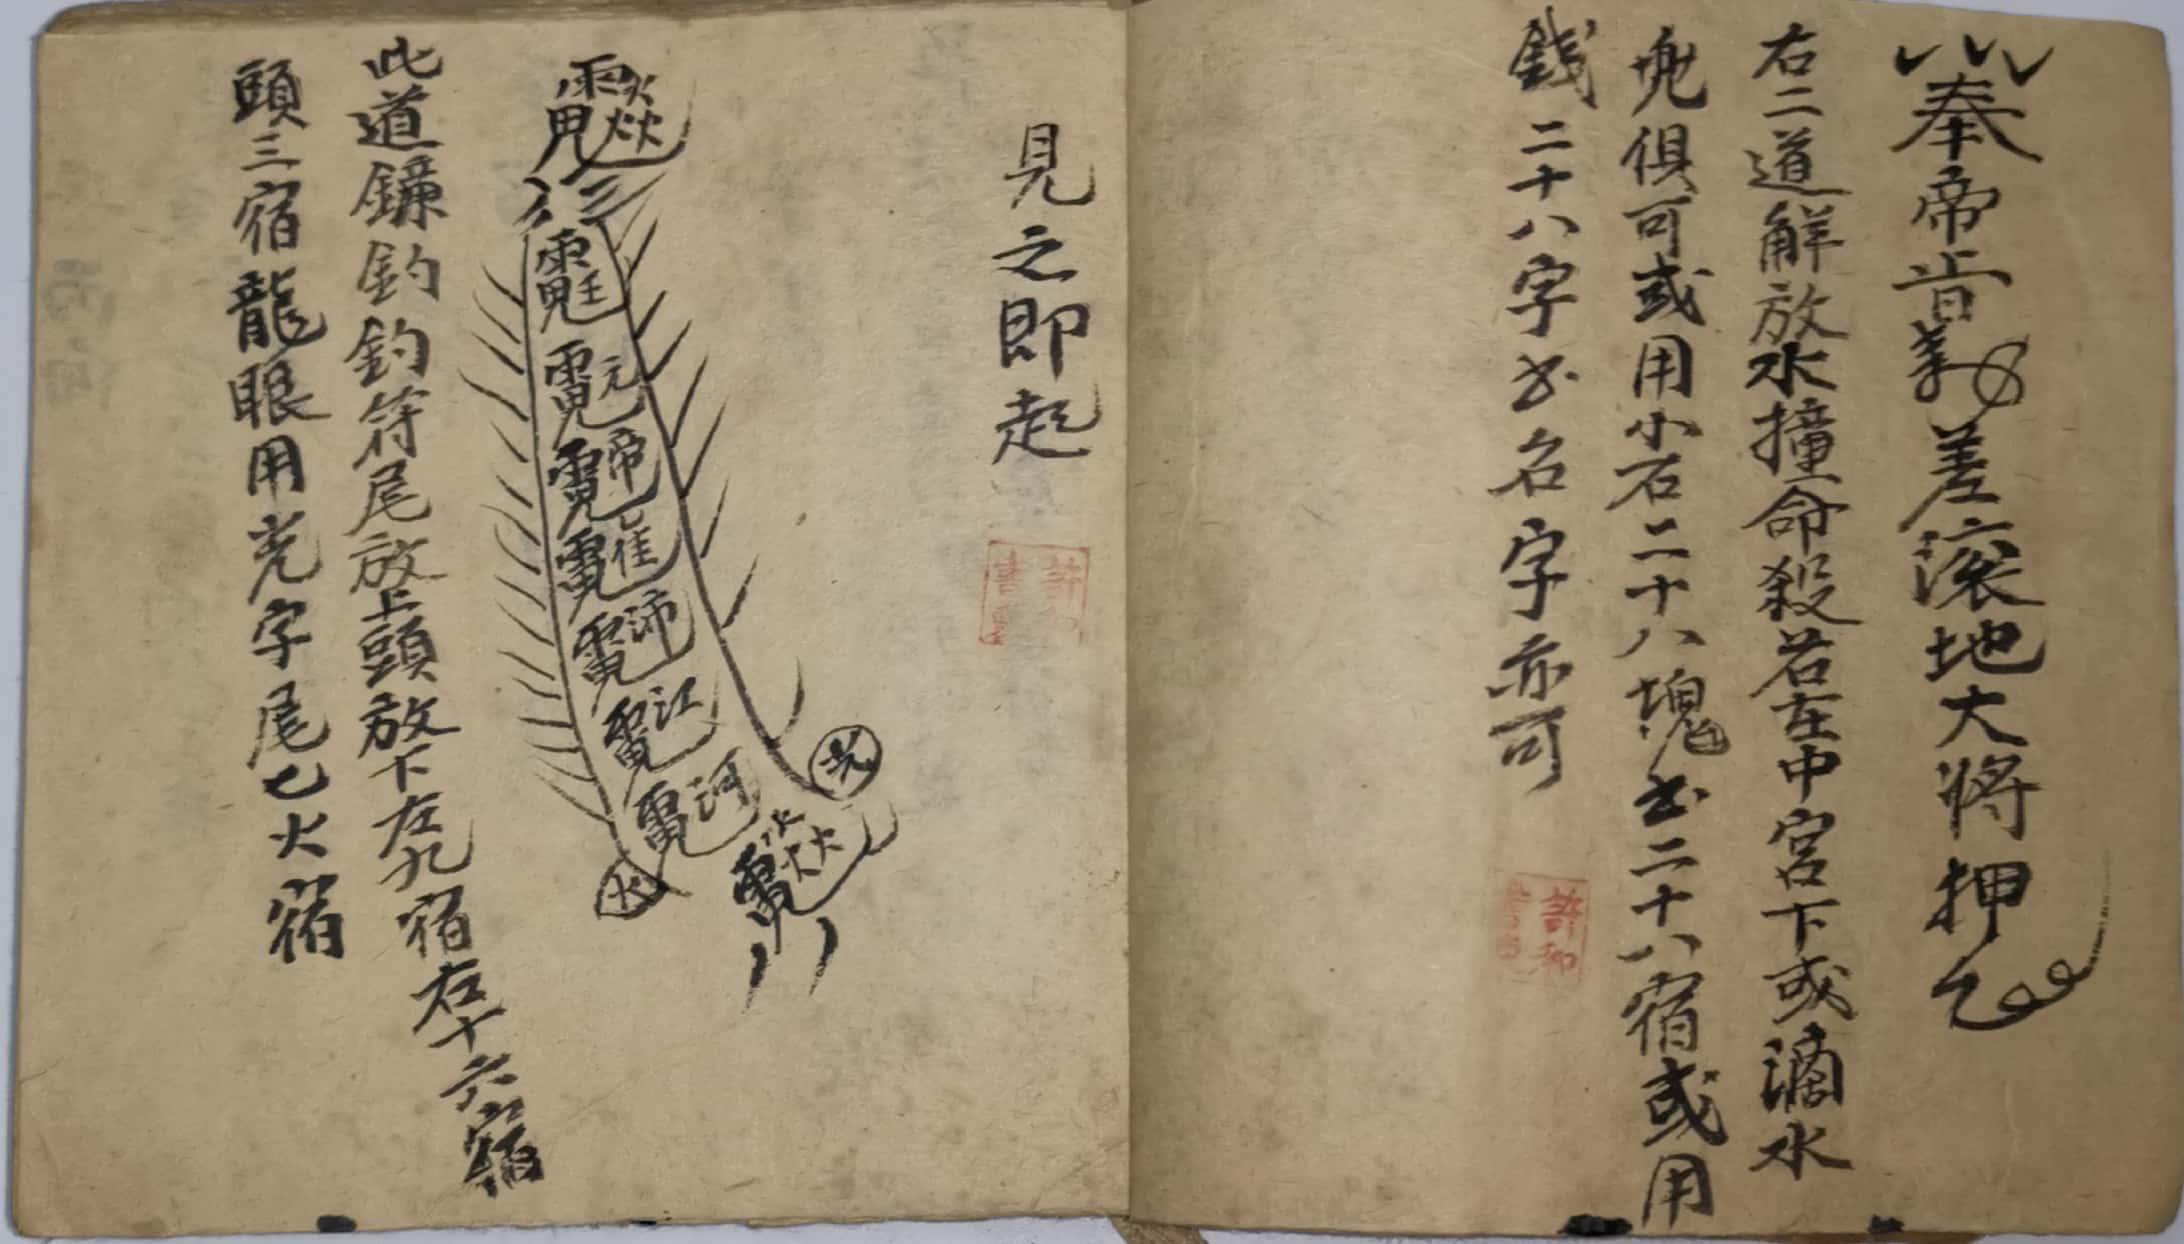 奉帝旨義差滾地大將押
右二道解放水撞命殺若在中宮下或滴水
兠俱可或用小石二十八塊书二十八宿或用
錢二十八字书名字亦可
許和
見之即起
許和
書
元
帝
淮
沛
江
河
光
火
此道鐮鈎鈎符尾放上頭放下左九宿右十六宿
頭三宿龍眼用光字尾七火宿